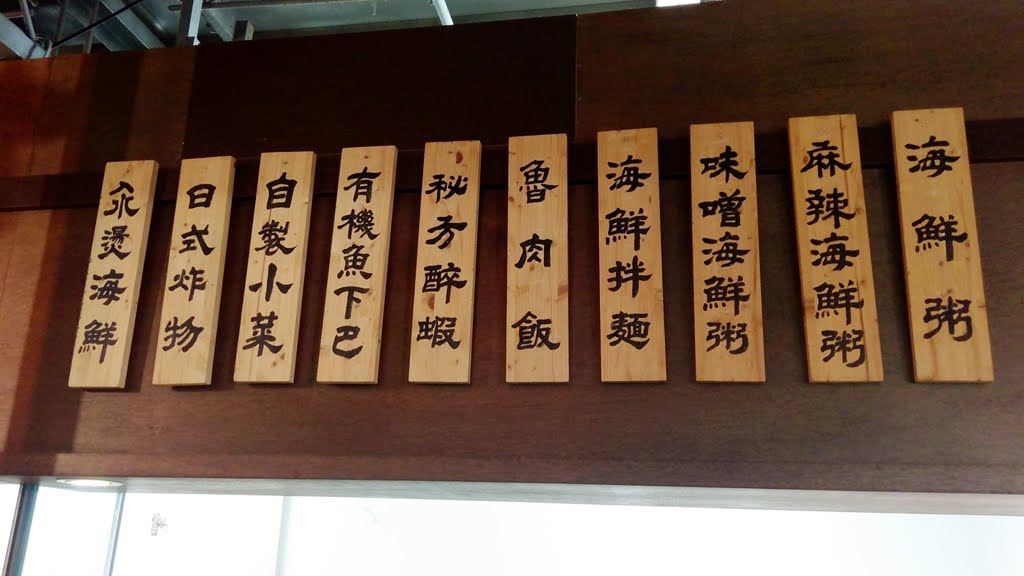 海鮮粥
麻辣海鮮粥
味噌海鮮粥
海鮮拌麵
魯肉飯
秘方醉蝦
有機魚下巴
自製小菜
日式炸物
汆燙海鮮